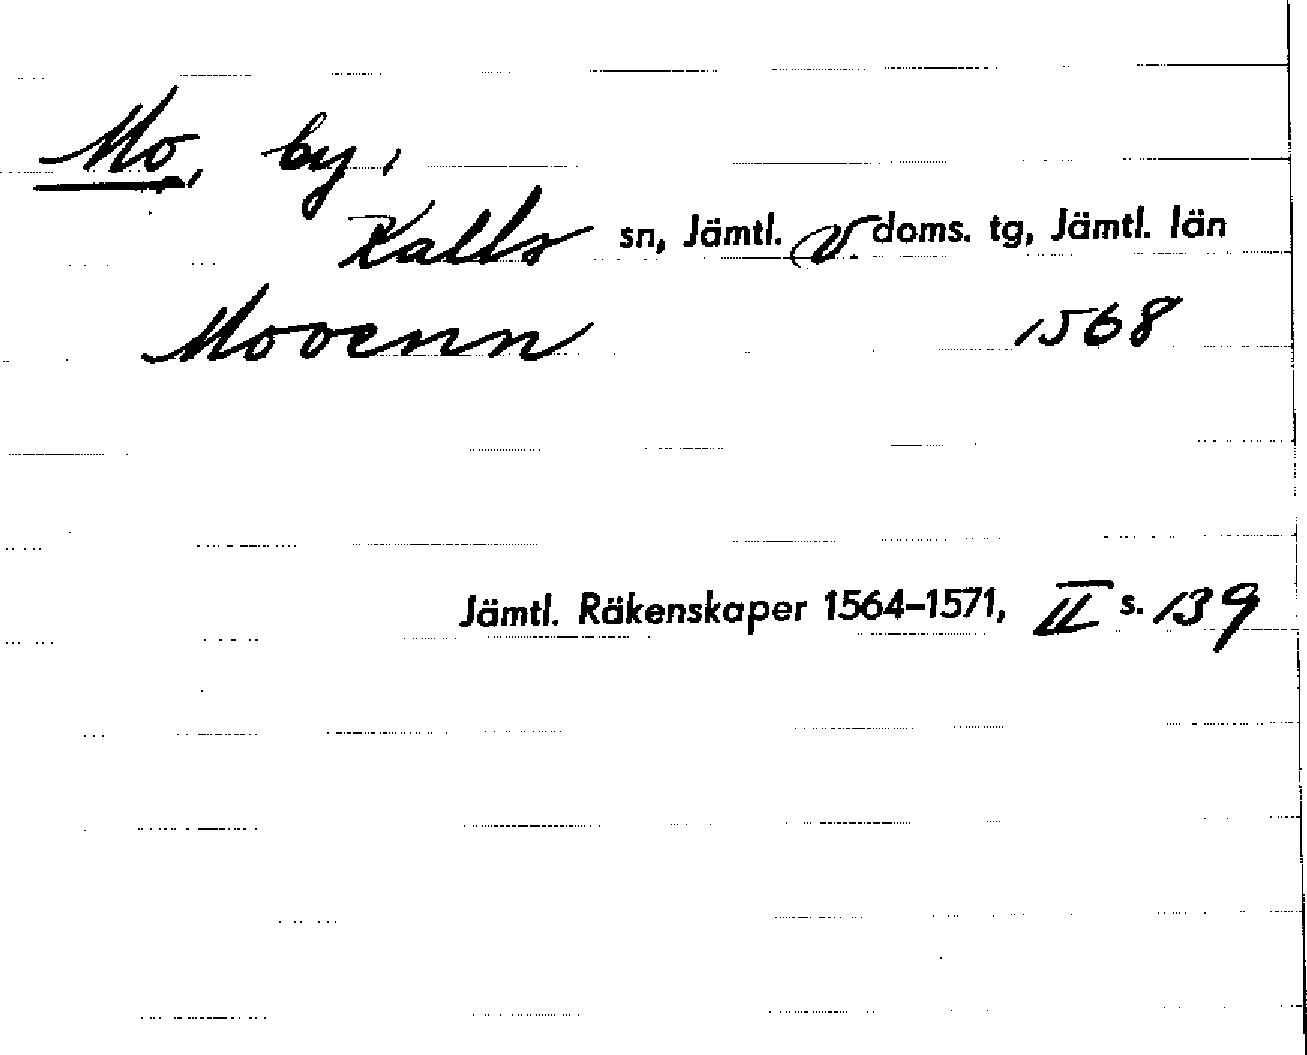 Mo, by,
Kalls sn, Jämtl. v. doms. tg, Jämtl. län
Mooenn 1568
Jämtl. Räkenskaper 1564–1571, II s. 139